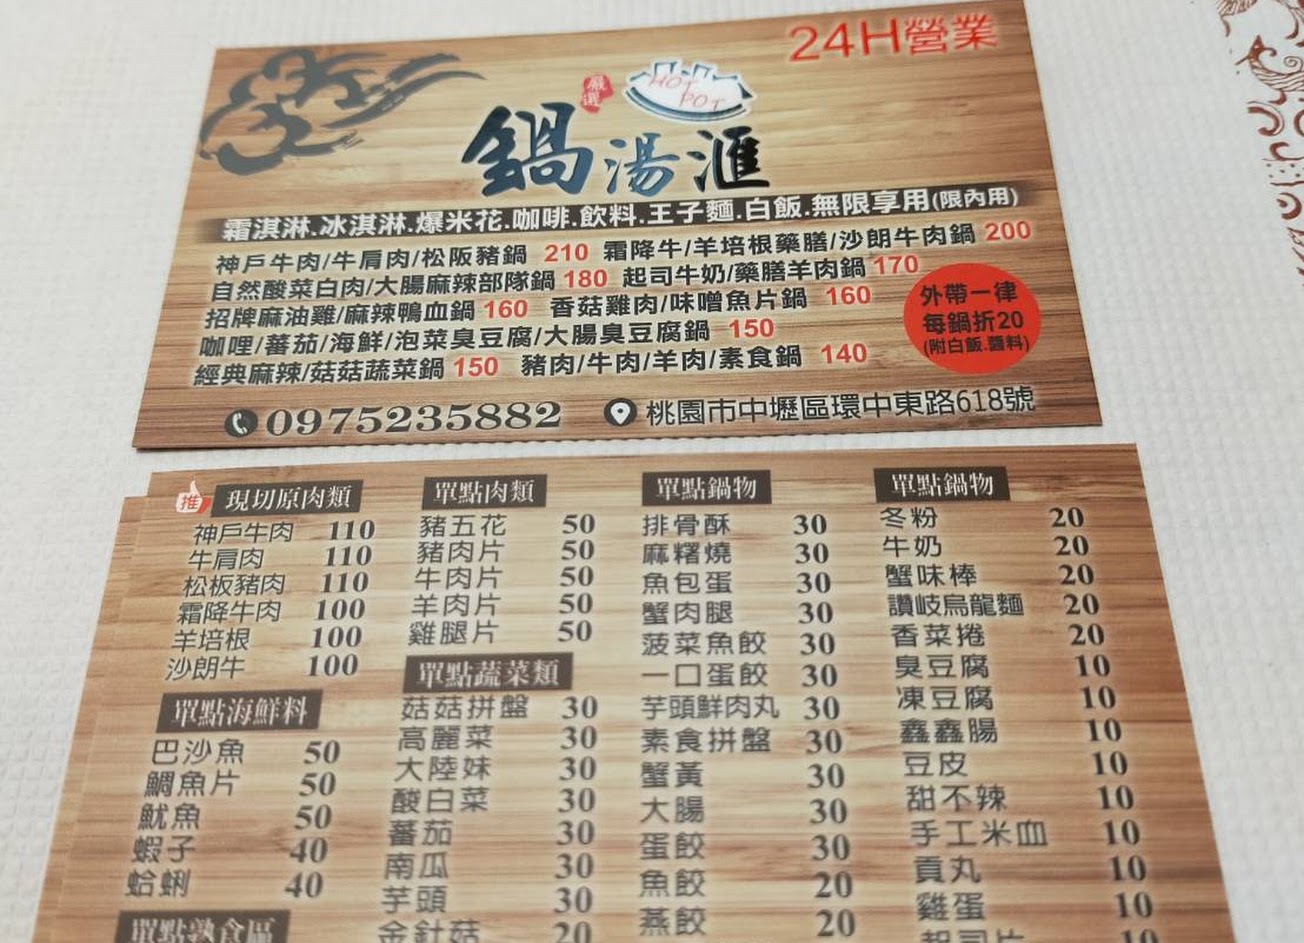 24H營業
嚴選
HOT POT
鍋湯滙
霜淇淋.冰淇淋.爆米花.咖啡.飲料.王子麵.白飯.無限享用(限內用)
神戶牛肉/牛肩肉/松阪豬鍋 210 霜降牛/羊培根藥膳/沙朗牛肉鍋 200
自然酸菜白肉/大腸麻辣部隊鍋 180 起司牛奶/藥膳羊肉鍋 170
招牌麻油雞/麻辣鴨血鍋 160 香菇雞肉/味噌魚片鍋 160
咖哩/蕃茄/海鮮/泡菜臭豆腐/大腸臭豆腐鍋 150
經典麻辣/菇菇蔬菜鍋 150 豬肉/牛肉/羊肉/素食鍋 140
外帶一律
每鍋折20
(附白飯.醬料)
0975235882 桃園市中壢區環中東路618號
推 現切原肉類
神戶牛肉 110
牛肩肉 110
松板豬肉 110
霜降牛肉 100
羊培根 100
沙朗牛 100
單點海鮮料
巴沙魚 50
鯛魚片 50
魷魚 50
蝦子 40
蛤蜊 40
單點熟食區
單點肉類
豬五花 50
豬肉片 50
牛肉片 50
羊肉片 50
雞腿片 50
單點蔬菜類
菇菇拼盤 30
高麗菜 30
大陸妹 30
酸白菜 30
蕃茄 30
南瓜 30
芋頭 30
金針菇 20
單點鍋物
排骨酥 30
麻糬燒 30
魚包蛋 30
蟹肉腿 30
菠菜魚餃 30
一口蛋餃 30
芋頭鮮肉丸 30
素食拼盤 30
蟹黃 30
大腸 30
蛋餃 30
魚餃 20
燕餃 20
單點鍋物
冬粉 20
牛奶 20
蟹味棒 20
讚岐烏龍麵 20
香菜捲 20
臭豆腐 10
凍豆腐 10
鑫鑫腸 10
豆皮 10
甜不辣 10
手工米血 10
貢丸 10
雞蛋 10
起司片 10